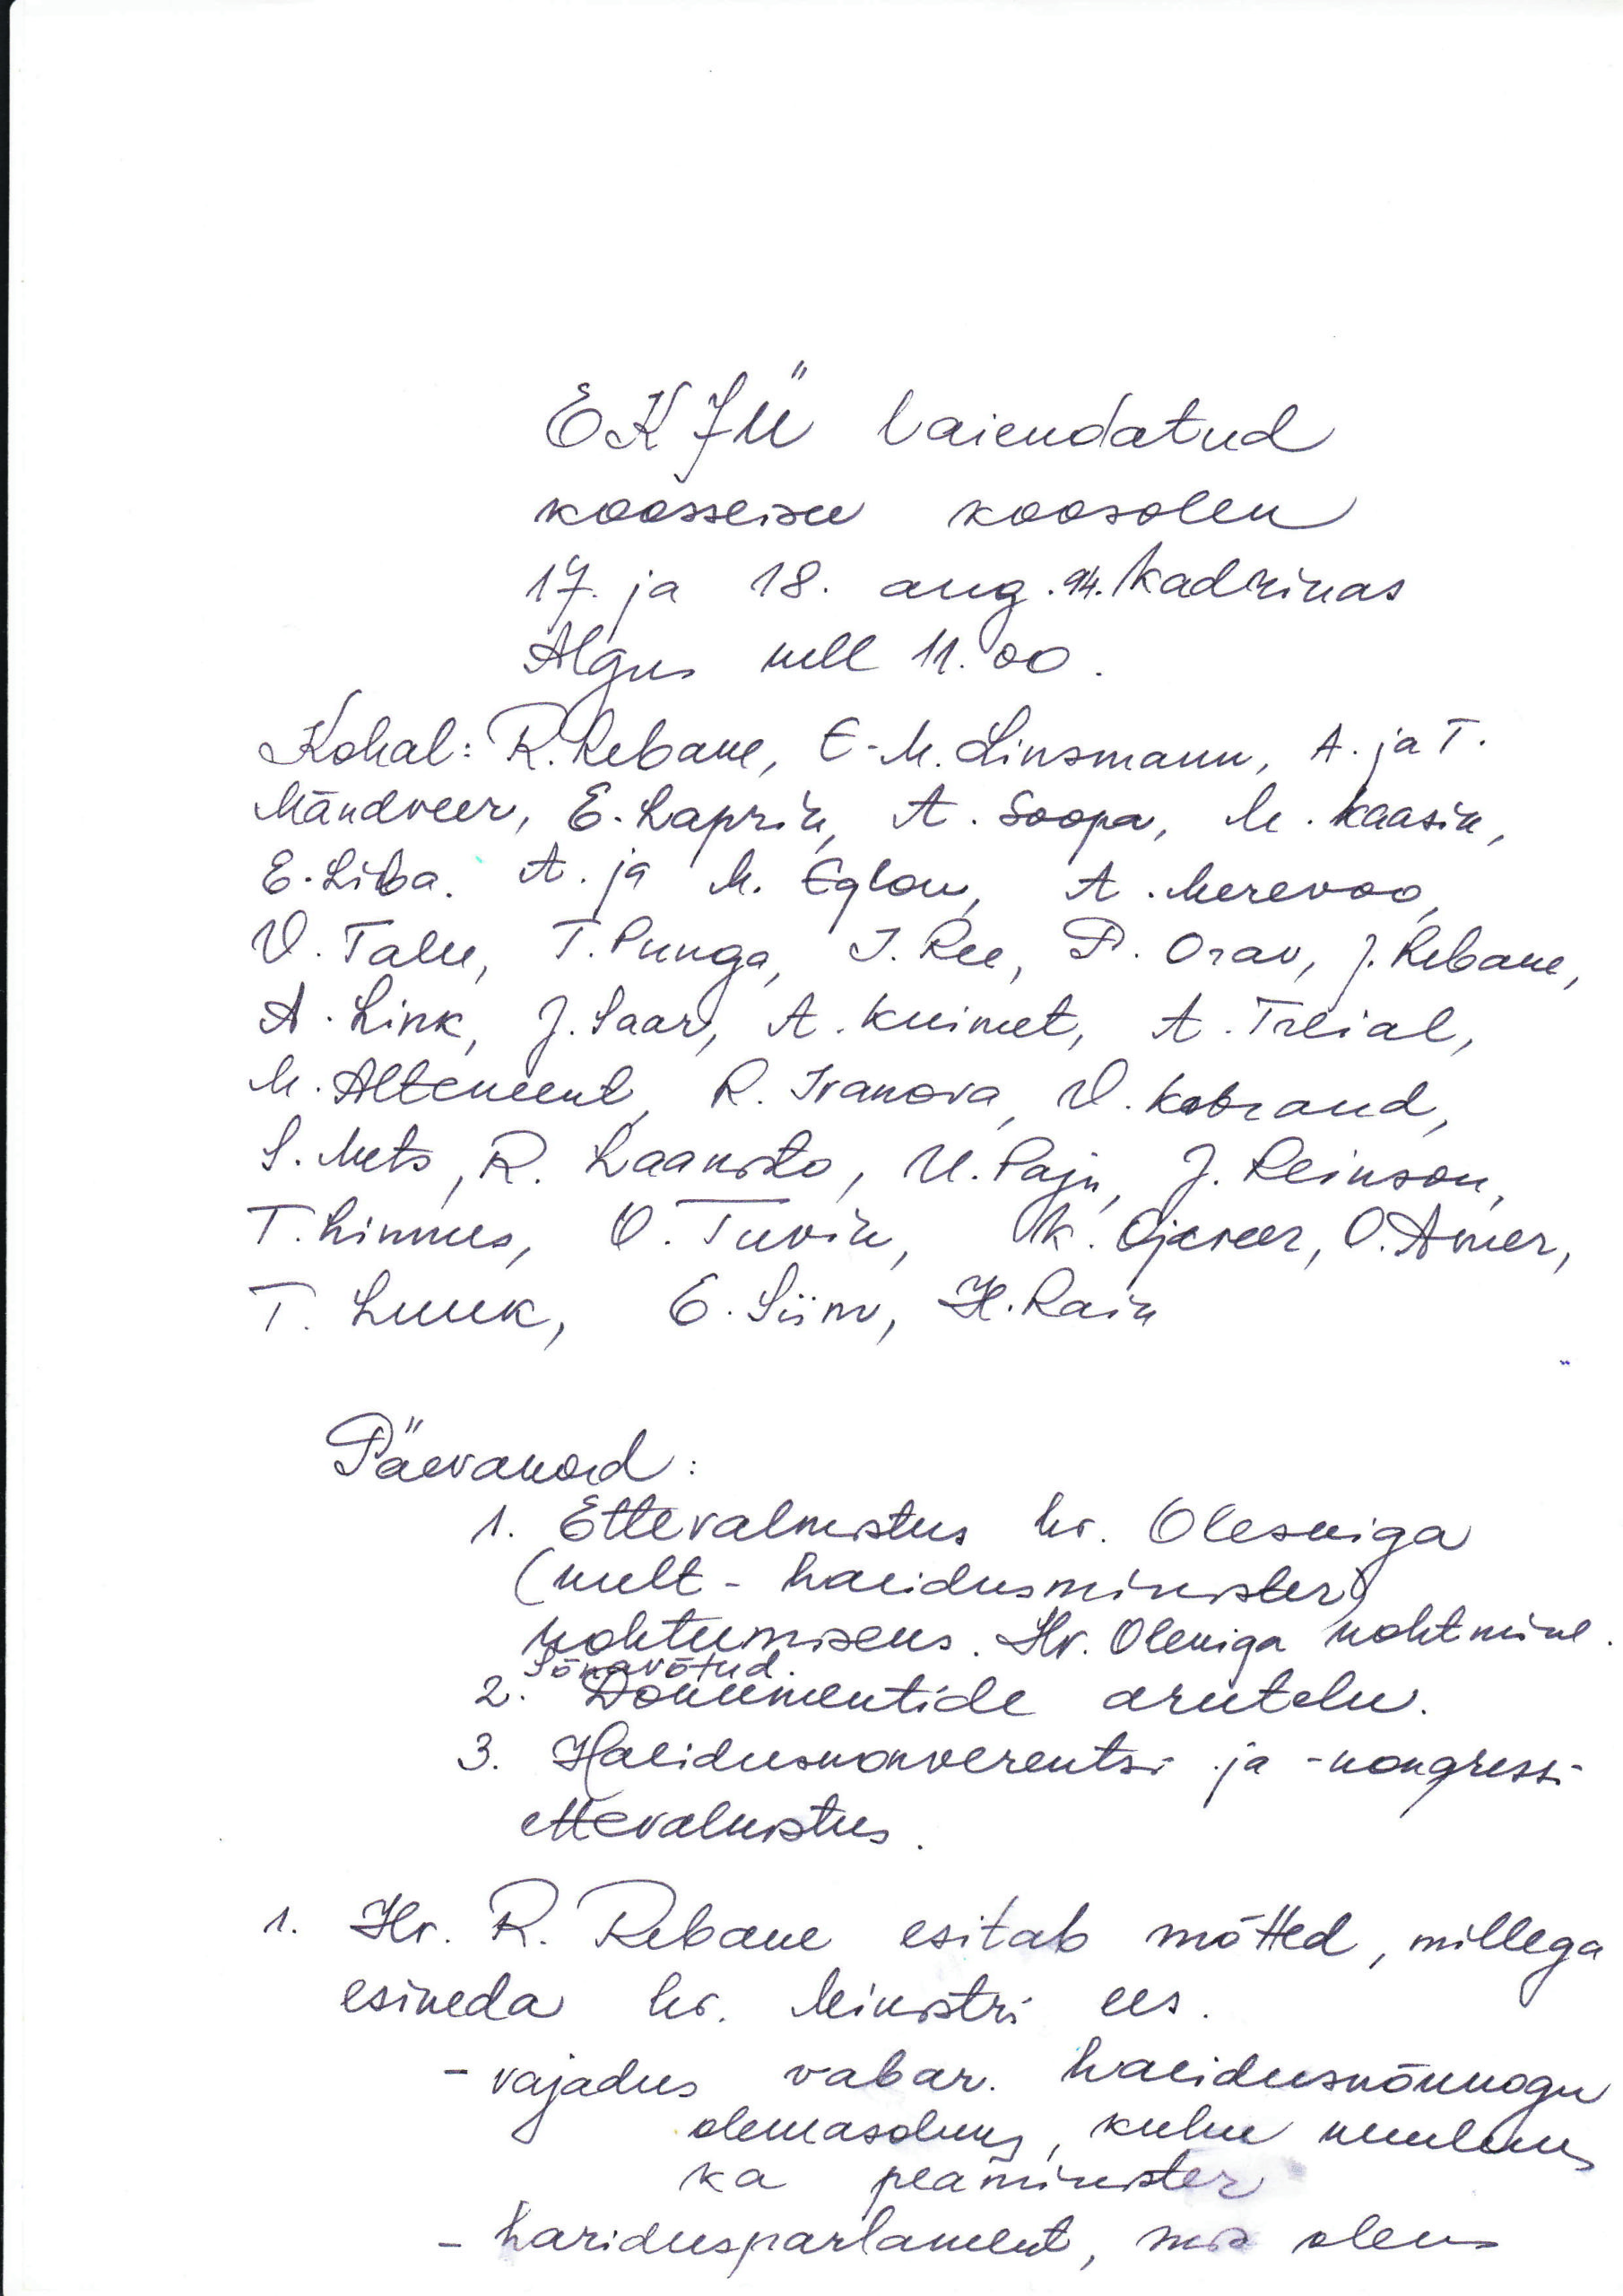 EKJÜ laiendatud
koosseisu koosolek
17. ja 18. aug. 94. Kadrinas
Algus kell 11.00.
Kohal: R. Rebane, E-M. Linsmann, A. ja T.
Mändveer, E. Laprik, A. Soopa, M. Kaasik,
E. Liba. A. ja M. Eglon, A. Merevoo,
V. Talu, T. Punga, I. Ree, P. Orav, J. Rebane,
A. Link, J. Saar, A. Kuimet, A. Treial,
M. Altement, R. Ivanova, V. Kobrand,
S. Mets, R. Laanisto, U. Paju, J. Reinson,
T. Linnus, O. Tuvik, K. Ojaveer, O. Amer,
T. Luuk, E. Siim, H. Raik
Päevakord:
1. Ettevalmistus hr. Oleskiga
(kult-haridusminister)
kohtumiseks. Hr. Oleskiga kohtmine.
Sõnavõtud.
2. Dokumentide arutelu.
3. Hariduskonverentsi ja -kongressi
ettevalmistus.
1. Hr. R. Rebane esitab mõtted, millega
esineda hr. Ministri ees.
- vajadus vabar. haridusnõukogu
olemasoluks, kuhu kuuluks
ka peaminister
- haridusparlament, mis oleks